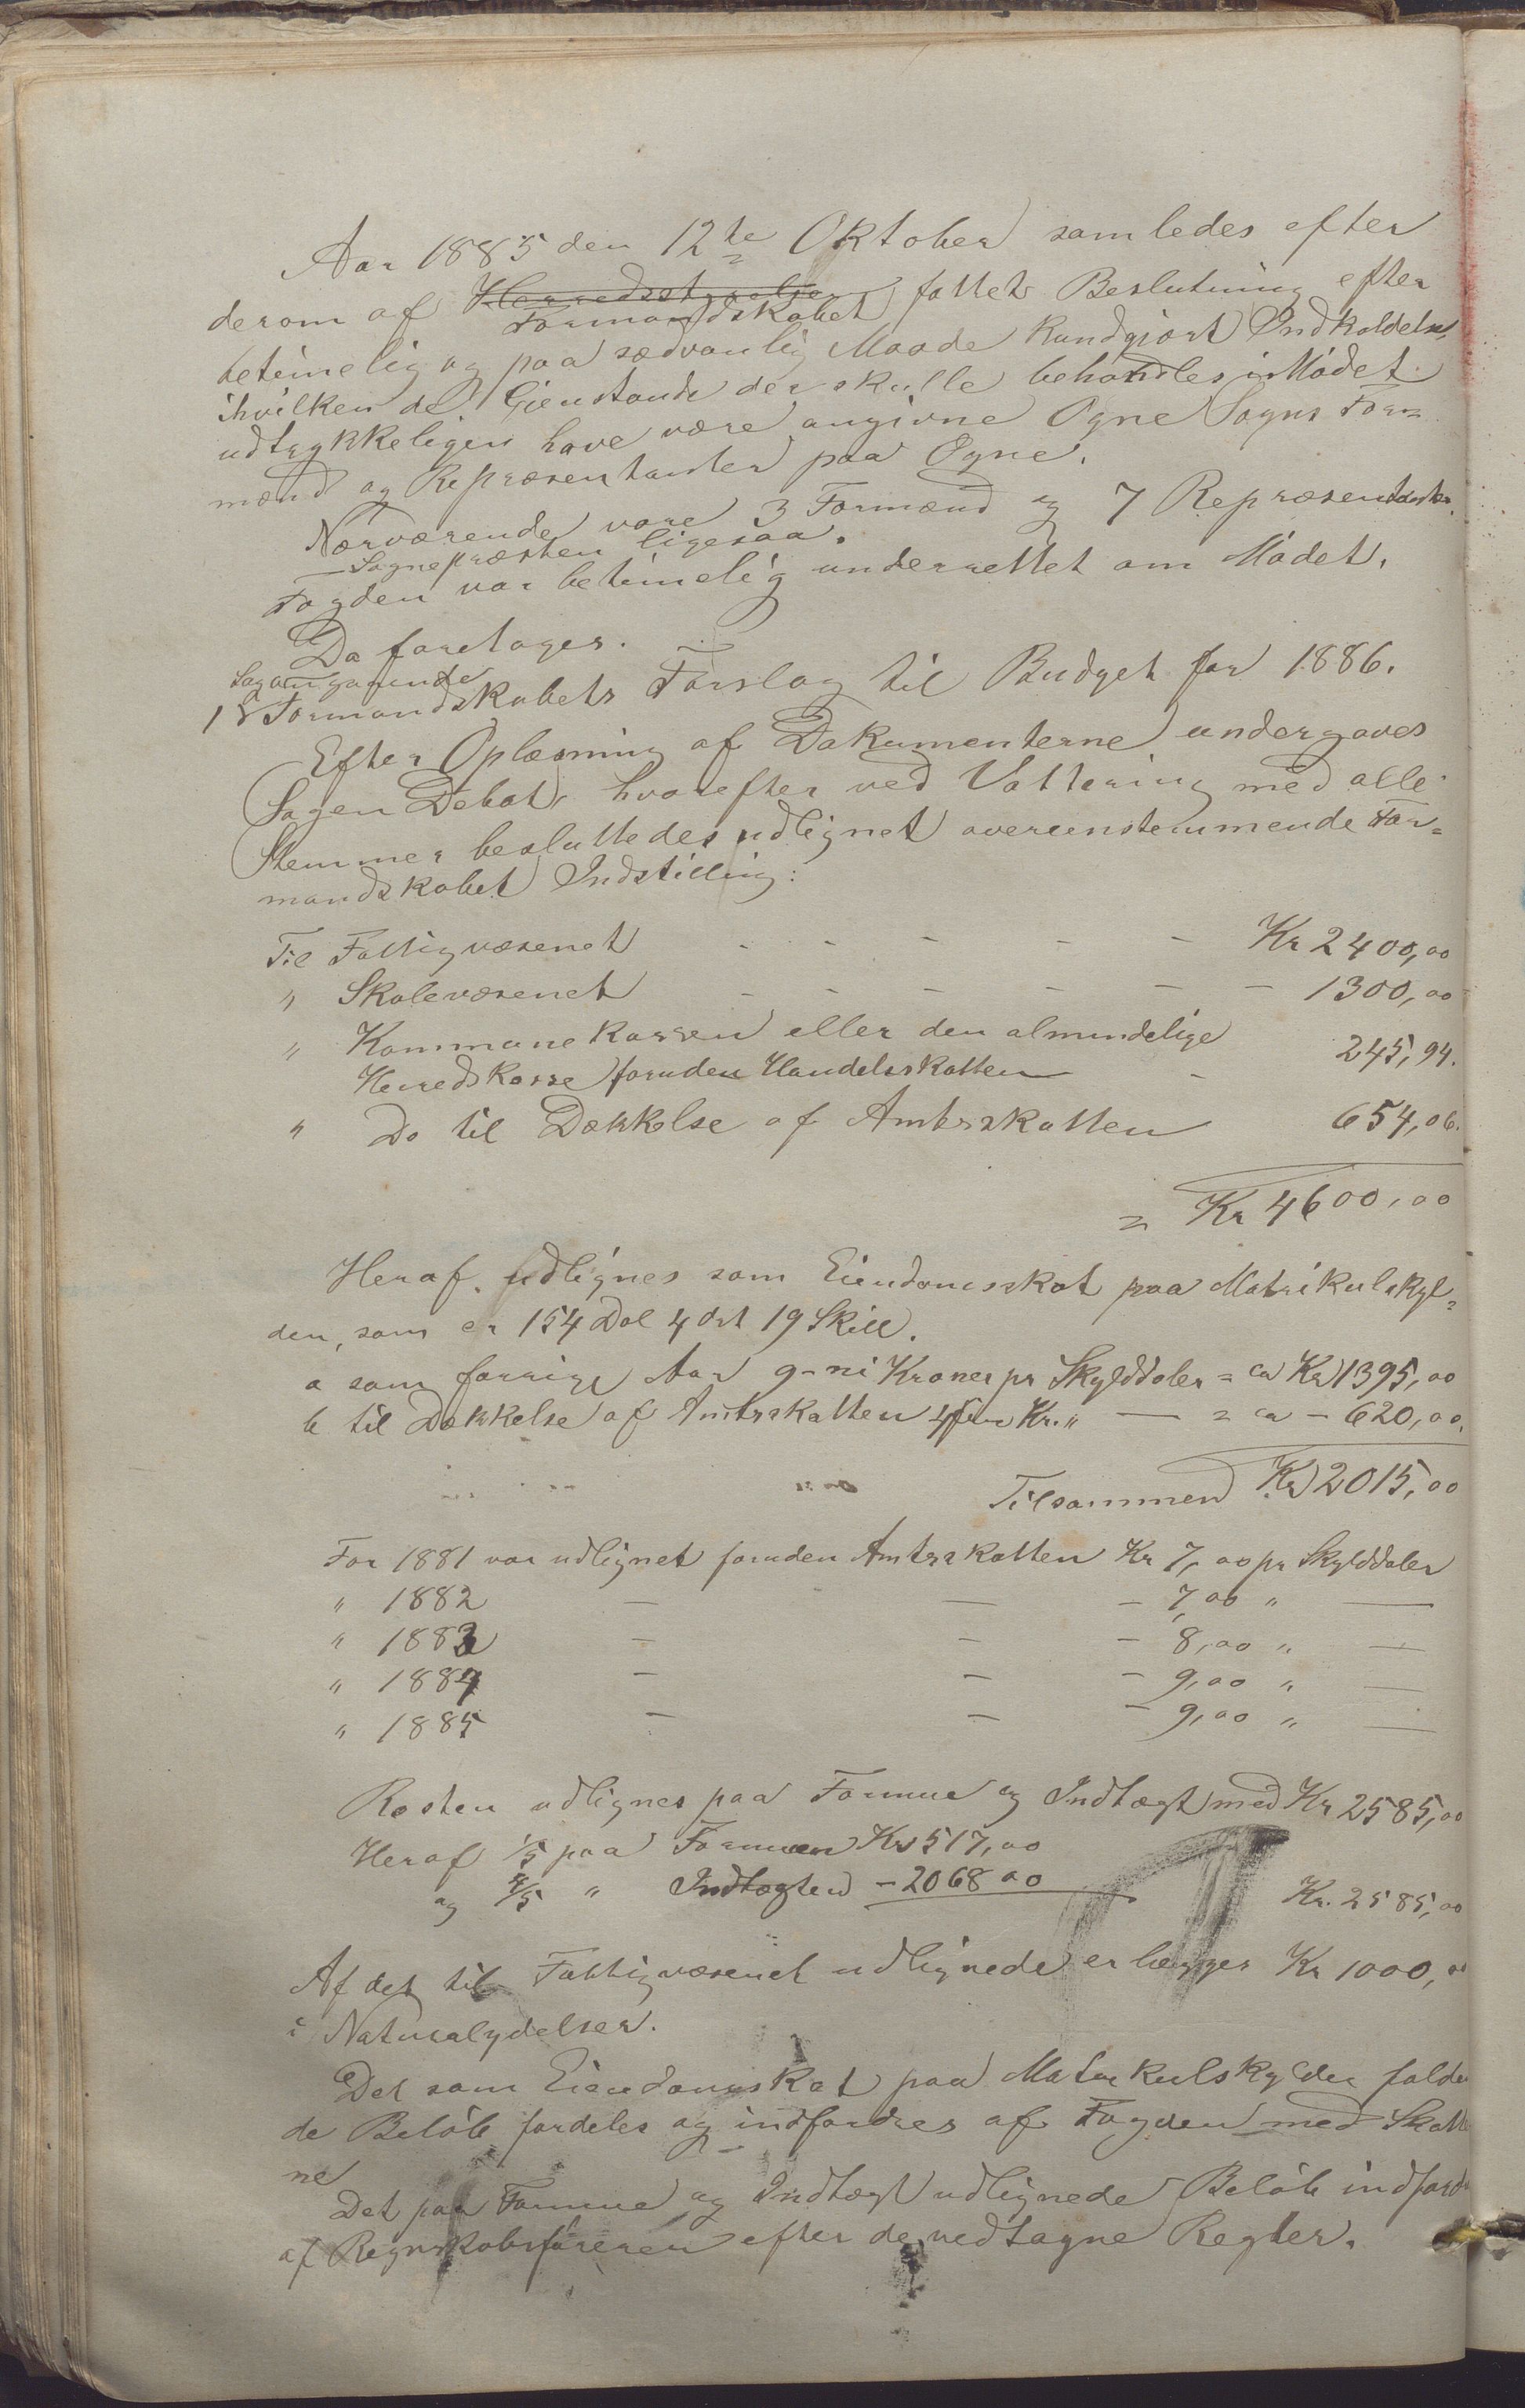 Aar 1885 den 12te Oktober samledes efter
derom af Herredsstyrelse fattet Beslutning efter
Formandskabet
betimelig og paa sædvanlig Maade Kundgjort Indkaldelse,
ihvilken de Gjenstande der skulle behandles i Mødet
udtrykkeligen have være angivne Ogne Sogns For=
mænd og Repræsentanter paa Ogne.
Nærværende vare 3 Formænd og 7 Repræsentanter.
Sognepræsten ligesaa.
Fogden var betimelig underrettet om Mødet.
Da foretages.
Sag angaaende
1 Formandskabets Forslag til Budget for 1886.
Efter Oplæsning af Dokumenterne undergaves
Sagen Debat, hvorefter ved Vottering med alle
Stemmer besluttedes udlignet overensstemmende For=
mandskabet Indstilling:
Til Fattigvæsenet - - - - - Kr 2400,00
" Skolevæsenet - - - - - - 1300,00
" Kommunekassen eller den almindelige
Herredskasse foruden Handelsskatten - 245,94.
" Do til Dækkelse af Amtsskatten 654,06.
= Kr 4600,00
Heraf udlignes som Eiendomsskat paa Matrikulskyl=
den, som er 154 Dal 4 Ort 19 Skill.
a som forrige Aar 9 - ni Kroner pr Skylddaler = ca Kr 1395,00
b til Dækkelse af Amtsskatten 4 fire Kr. " — = ca - 620,00.
Tilsammen Kr 2015,00
For 1881 var udlignet foruden Amtsskatten Kr 7,00 pr Skylddaler
" 1882 — — - 7,00 " —
" 1883 — — - 8,00 " —
" 1884 — — - 9,00 " —
" 1885 — — - 9,00 " —
Resten udlignes paa Formue og Indtægt med Kr 2585,00
Heraf 1/5 paa Formuen Kr 517,00
og 4/5 " Indtægten - 2068 00 Kr. 2585,00
Af det til Fattigvæsenet udlignede erlægges Kr 1000,00
i Naturalydelser.
Det som Eiendomsskat paa Matrikulskylden falden
de Beløb fordeles og indfordres af Fogden med Skatte
ne
Det paa Formue og Indtægt udlignede Beløb indfordr
af Regnskabsføreren efter de vedtagne Regler.